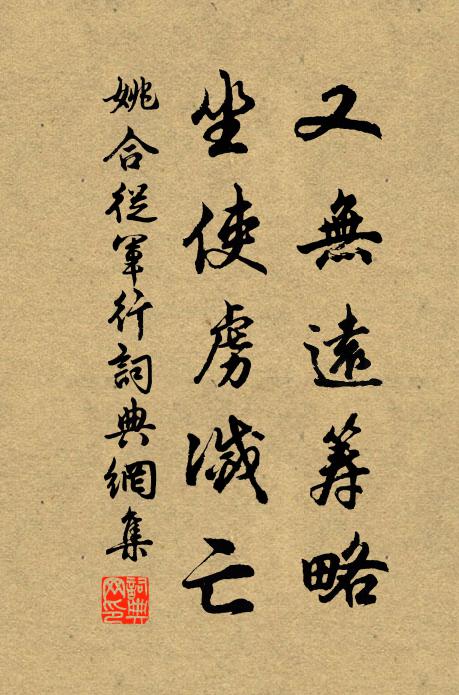 又無遠籌略
坐使虜滅亡
姚合從軍行詞典網集
詞典網印